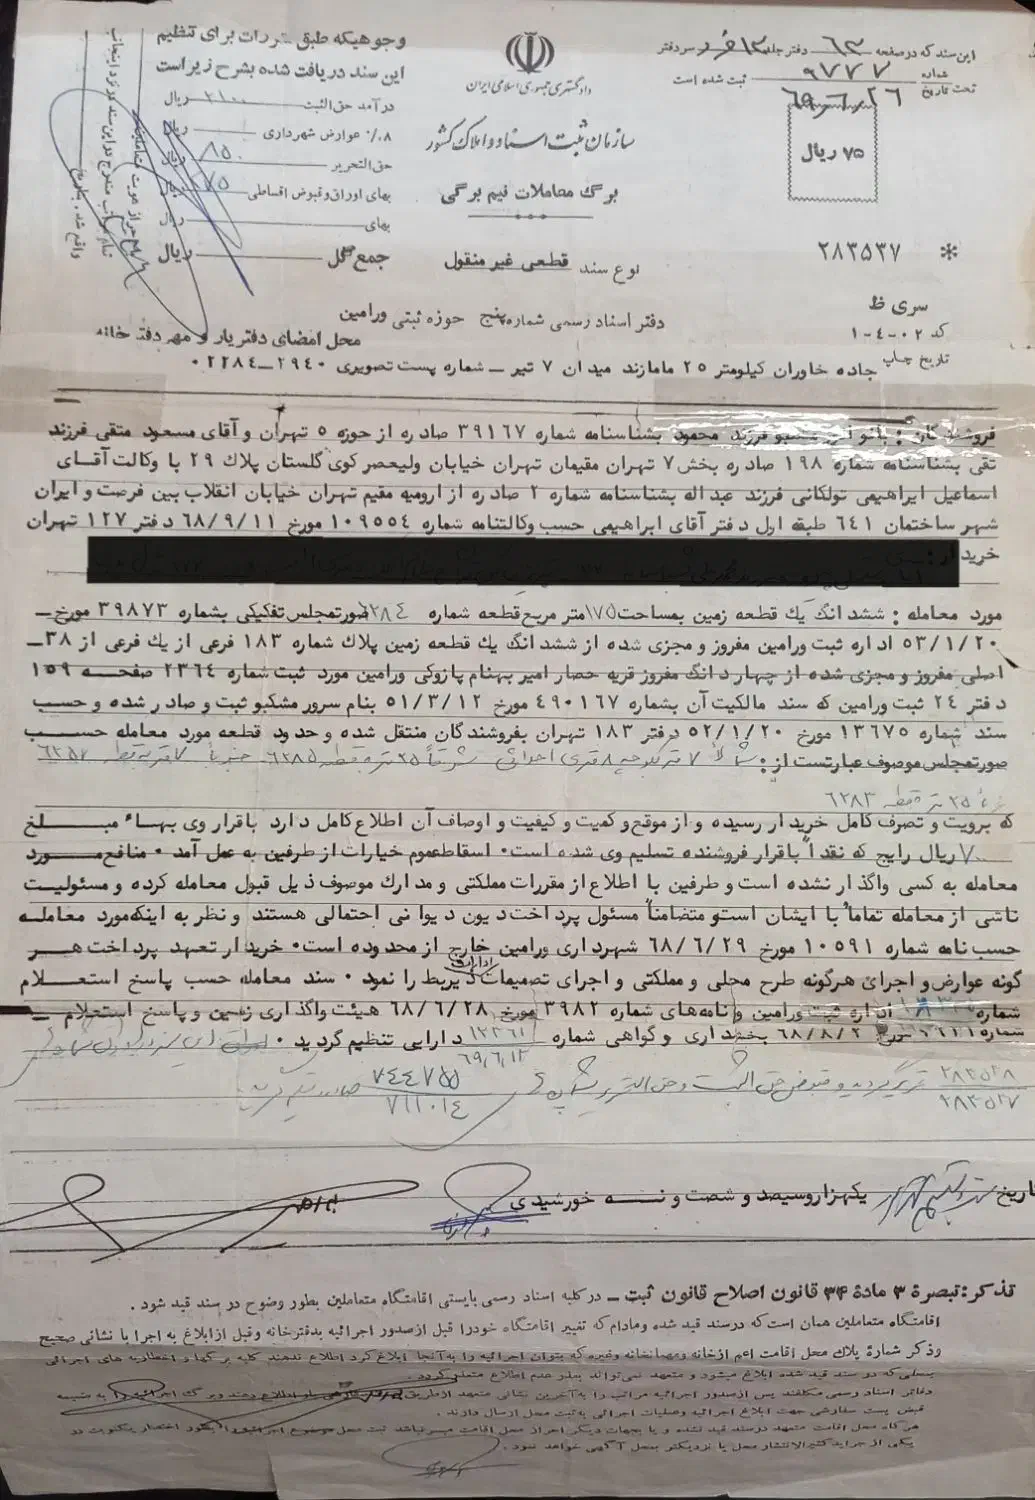 این سند که در صفحه ۶۳ دفتر جلد ۱۳ سردفتر
شماره ۹۷۷۷ ثبت شده است
تحت تاریخ ۶۹/۶/۲۶
۷۵ ریال
دادگستری جمهوری اسلامی ایران
سازمان ثبت اسناد و املاک کشور
برگ معاملات نیم برگی
نوع سند قطعی غیر منقول
وجوهیکه طبق مقررات برای تنظیم
این سند دریافت شده بشرح زیر است
درآمد حق‌الثبت ۲۱۰۰ ریال
۸٪ عوارض شهرداری ریال
حق‌التحریر ۸۵۰ ریال
بهای اوراق و قبوض اقساطی ۷۵ ریال
بهای ریال
جمع کل ریال
* ۲۸۳۵۳۷
سری ظ
کد ۰۲-۴-۱
تاریخ چاپ
دفتر اسناد رسمی شماره پنج حوزه ثبتی ورامین
محل امضای دفتریار و مهر دفترخانه
جاده خاوران کیلومتر ۲۵ مامازند میدان ۷ تیر ــ شماره پست تصویری ۲۹۴۰ــ۰۲۲۸۴
فروشندگان : بانو فرزند محمود بشناسنامه شماره ۳۹۱۶۷ صادره از حوزه ۵ تهران و آقای مسعود متقی فرزند
تقی بشناسنامه شماره ۱۹۸ صادره بخش ۷ تهران مقیمان تهران خیابان ولیعصر کوی گلستان پلاک ۲۹ با وکالت آقای
اسماعیل ابراهیمی تولکانی فرزند عبداله بشناسنامه شماره ۲ صادره از ارومیه مقیم تهران خیابان انقلاب بین فرصت و ایران
شهر ساختمان ۶۴۱ طبقه اول دفتر آقای ابراهیمی حسب وکالتنامه شماره ۱۰۹۵۵۴ مورخ ۶۸/۹/۱۱ دفتر ۱۲۷ تهران
خریدار :
مورد معامله : ششدانگ یک قطعه زمین بمساحت ۱۷۵ متر مربع قطعه شماره ۶۲۸۴ صورتمجلس تفکیکی بشماره ۳۹۸۷۳ مورخ ــ
۵۳/۱/۲۰ اداره ثبت ورامین مفروز و مجزی شده از ششدانگ یک قطعه زمین پلاک شماره ۱۸۳ فرعی از یک فرعی از ۳۸ــ
اصلی مفروز و مجزی شده از چهار دانگ مفروز قریه حصار امیر بهنام پازوکی ورامین مورد ثبت شماره ۲۳۶۴ صفحه ۱۵۹
دفتر ۲۴ ثبت ورامین که سند مالکیت آن بشماره ۴۹۰۱۶۷ مورخ ۵۱/۳/۱۲ بنام سرور مشکبو ثبت و صادر شده و حسب
سند شماره ۱۳۶۷۵ مورخ ۵۲/۱/۲۰ دفتر ۱۸۳ تهران بفروشندگان منتقل شده و حدود قطعه مورد معامله حسب
صورتمجلس موصوف عبارتست از : شمالا ۷ متر بکوچه ۸ متری احداثی شرقا ۲۵ متر بقطعه ۶۲۸۵ جنوبا ۷ متر بقطعه ۶۲۵۷
غربا ۲۵ متر بقطعه ۶۲۸۳
که برویت و تصرف کامل خریدار رسیده و از موقع و کمیت و کیفیت و اوصاف آن اطلاع کامل دارد باقرار وی بهاء مبلغ
ریال رایج که نقداً باقرار فروشنده تسلیم وی شده است . اسقاط عموم خیارات از طرفین به عمل آمد . منافع مورد
معامله به کسی واگذار نشده است و طرفین با اطلاع از مقررات مملکتی و مدارک موصوف ذیل قبول معامله کرده و مسئولیت
ناشی از معامله تماماً با ایشان است و متضامناً مسئول پرداخت دیون دیوانی احتمالی هستند و نظر به اینکه مورد معامله
حسب نامه شماره ۱۰۵۹۱ مورخ ۶۸/۶/۲۹ شهرداری ورامین خارج از محدوده است . خریدار تعهد پرداخت هر
گونه عوارض و اجرای هرگونه طرح محلی و مملکتی و اجرای تصمیمات ادارات ذیربط را نمود . سند معامله حسب پاسخ استعلام
شماره اداره ثبت ورامین و نامه‌های شماره ۳۹۸۲ مورخ ۶۸/۶/۲۸ هیئت واگذاری زمین و پاسخ استعلام ــ
شماره مورخ ۶۸/۸/۲ بخشداری و گواهی شماره ۱۲۲۶۱ ۶۹/۶/۱۲ دارایی تنظیم گردید .
۲۸۳۵۲۸
۲۸۳۵۲۷ تحریر گردید و قبوض حق الثبت و حق التحریر بشماره ۷۴۴۷۵۵
۷۱۱۰۱۴
تاریخ یکهزار و سیصد و شصت و نه خورشیدی
تذکر : تبصرهٔ ۳ مادهٔ ۳۴ قانون اصلاح قانون ثبت ــ در کلیه اسناد رسمی بایستی اقامتگاه متعاملین بطور وضوح در سند قید شود .
اقامتگاه متعاملین همان است که در سند قید شده و مادام که تغییر اقامتگاه خود را قبل از صدور اجرائیه بدفترخانه و قبل از ابلاغ به اجرا با نشانی صحیح
و ذکر شمارهٔ پلاک محل اقامت اعم از خانه و مهمانخانه وغیره که بتوان اجرائیه را به آنجا ابلاغ کرد اطلاع ندهند کلیه برگها و اخطاریه های اجرائی
بمحلی که در سند قید شده ابلاغ میشود و متعهد نمی‌تواند بعذر عدم اطلاع متعذر گردد .
دفاتر اسناد رسمی مکلفند پس از صدور اجرائیه مراتب را به آخرین نشانی متعهد از طریق پست سفارشی باو اطلاع دهند و برگ اجرائیه را به ضمیمه
قبض پست سفارشی جهت ابلاغ اجرائیه و عملیات اجرائی به ثبت محل ارسال دارند .
هرگاه محل اقامت متعهد در سند قید نشده و یا بجهات دیگر احراز محل اقامت میسر نباشد ثبت محل موضوع اجرائیه را بطور اختصار یکنوبت در
یکی از جراید کثیرالانتشار محل یا نزدیکتر بمحل آگهی خواهد نمود .